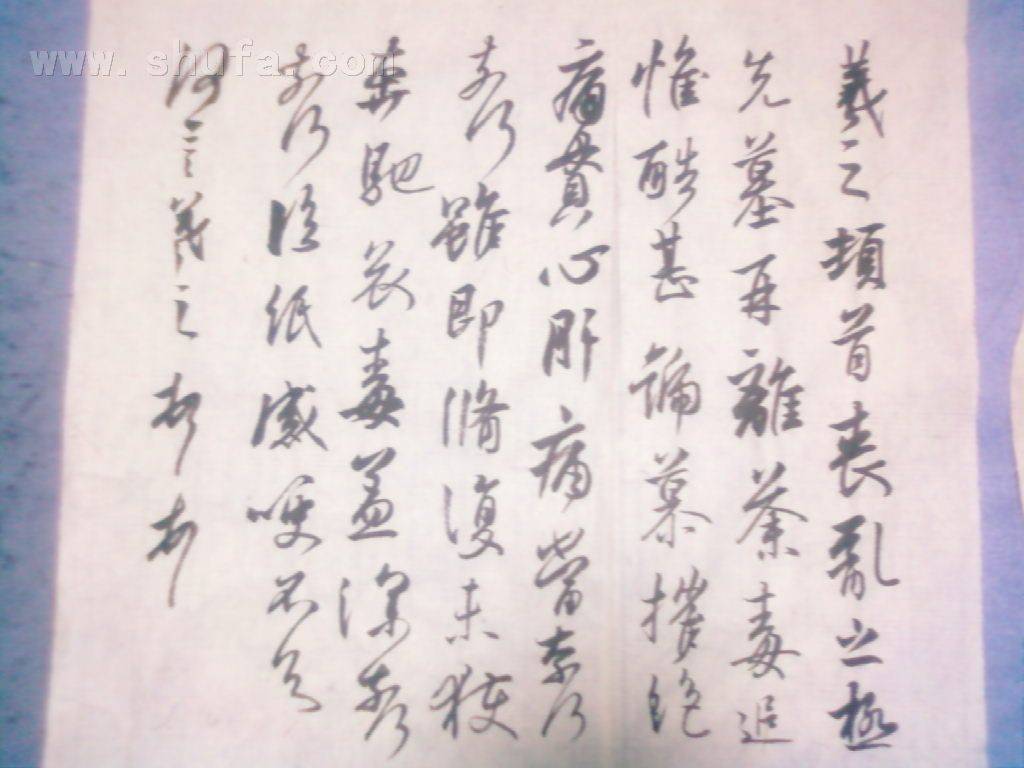 羲之頓首喪亂之極
先墓再離荼毒追
惟酷甚號慕摧絕
痛貫心肝痛當奈何
奈何雖即脩復未獲
奔馳哀毒益深奈何
奈何臨紙感哽不知
何言羲之頓首頓首
www.shufa.com